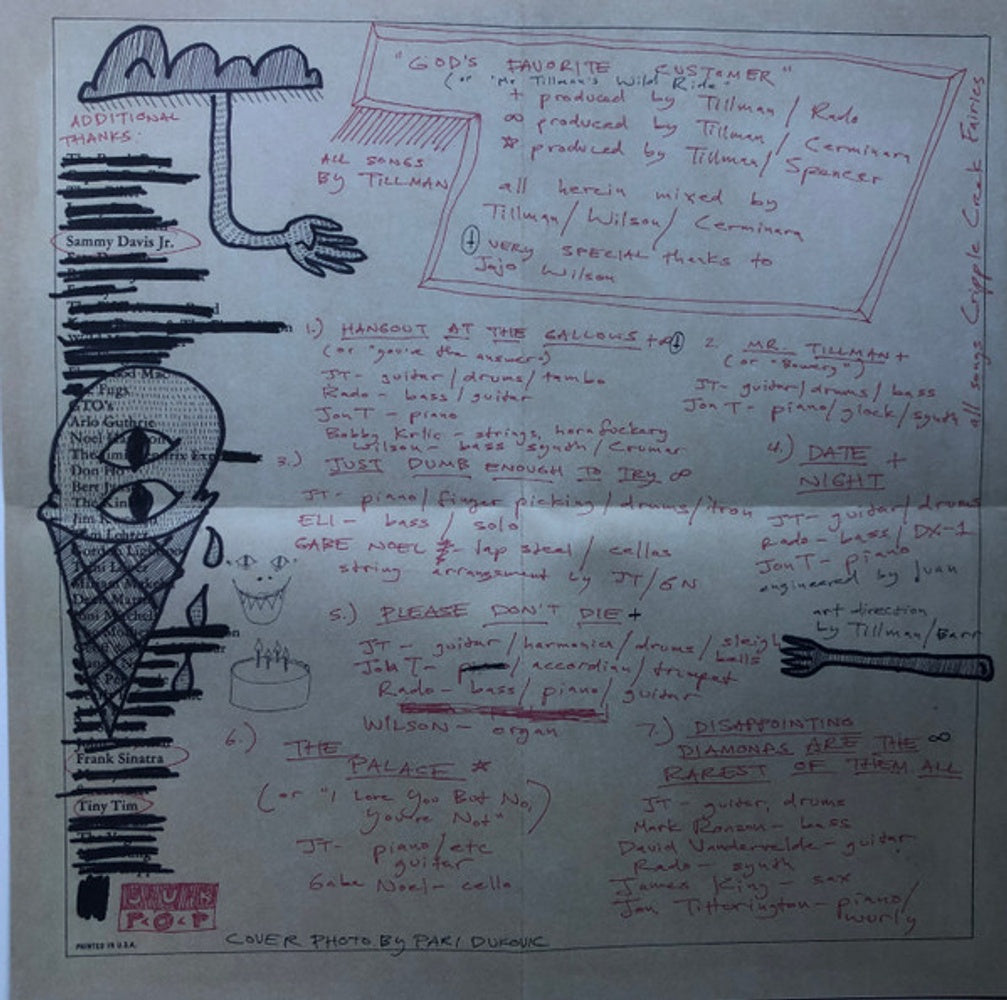 ADDITIONAL
THANKS:
Sammy Davis Jr.
Fugs
GTO's
Arlo Guthrie
Noel
The
Don Ho
Bert
The Kin
Jim K
Gordon Ligh
Joni Mitchell
Frank Sinatra
Tiny Tim
PRINTED IN U.S.A.
"GOD'S FAVORITE CUSTOMER"
(or "Mr Tillman's Wild Ride"
+ produced by Tillman / Rado
∞ produced by Tillman / Cerminara
☆ produced by Tillman / Spencer
all herein mixed by
Tillman / Wilson / Cerminara
VERY SPECIAL thanks to
Jojo Wilson
ALL SONGS
BY TILLMAN
all songs Cripple Creek Fairies
1.) HANGOUT AT THE GALLOWS +∞
(or "you're the answer")
JT - guitar / drums / tambo
Rado - bass / guitar
Jon T - piano
Bobby Krlic - strings, horn fuckery
Wilson - bass synth / Crumar
2. MR. TILLMAN +
(or "Bowery")
JT - guitar / drums / bass
Jon T - piano / glock / synth
3.) JUST DUMB ENOUGH TO TRY ∞
JT - piano / finger picking / drums / tron
ELI - bass / solo
GABE NOEL - lap steel / cellos
string arrangement by JT / GN
4.) DATE +
NIGHT
JT - guitar / drums
Rado - bass / DX-1
Jon T - piano
engineered by Ivan
art direction
by Tillman / Barr
5.) PLEASE DON'T DIE +
JT - guitar / harmonica / drums / sleigh
bells
Jon T - / accordian / trumpet
Rado - bass / piano / guitar
WILSON - organ
6.) THE
PALACE ☆
(or "I Love You But No,
You're Not")
JT - piano / etc
guitar
Gabe Noel - cello
7.) DISAPPOINTING
DIAMONDS ARE THE ∞
RAREST OF THEM ALL
JT - guitar, drums
Mark Ronson - bass
David Vandervelde - guitar
Rado - synth
James King - sax
Jon Titterington - piano /
wurly
SUB
POP
COVER PHOTO BY PARI DUKOVIC